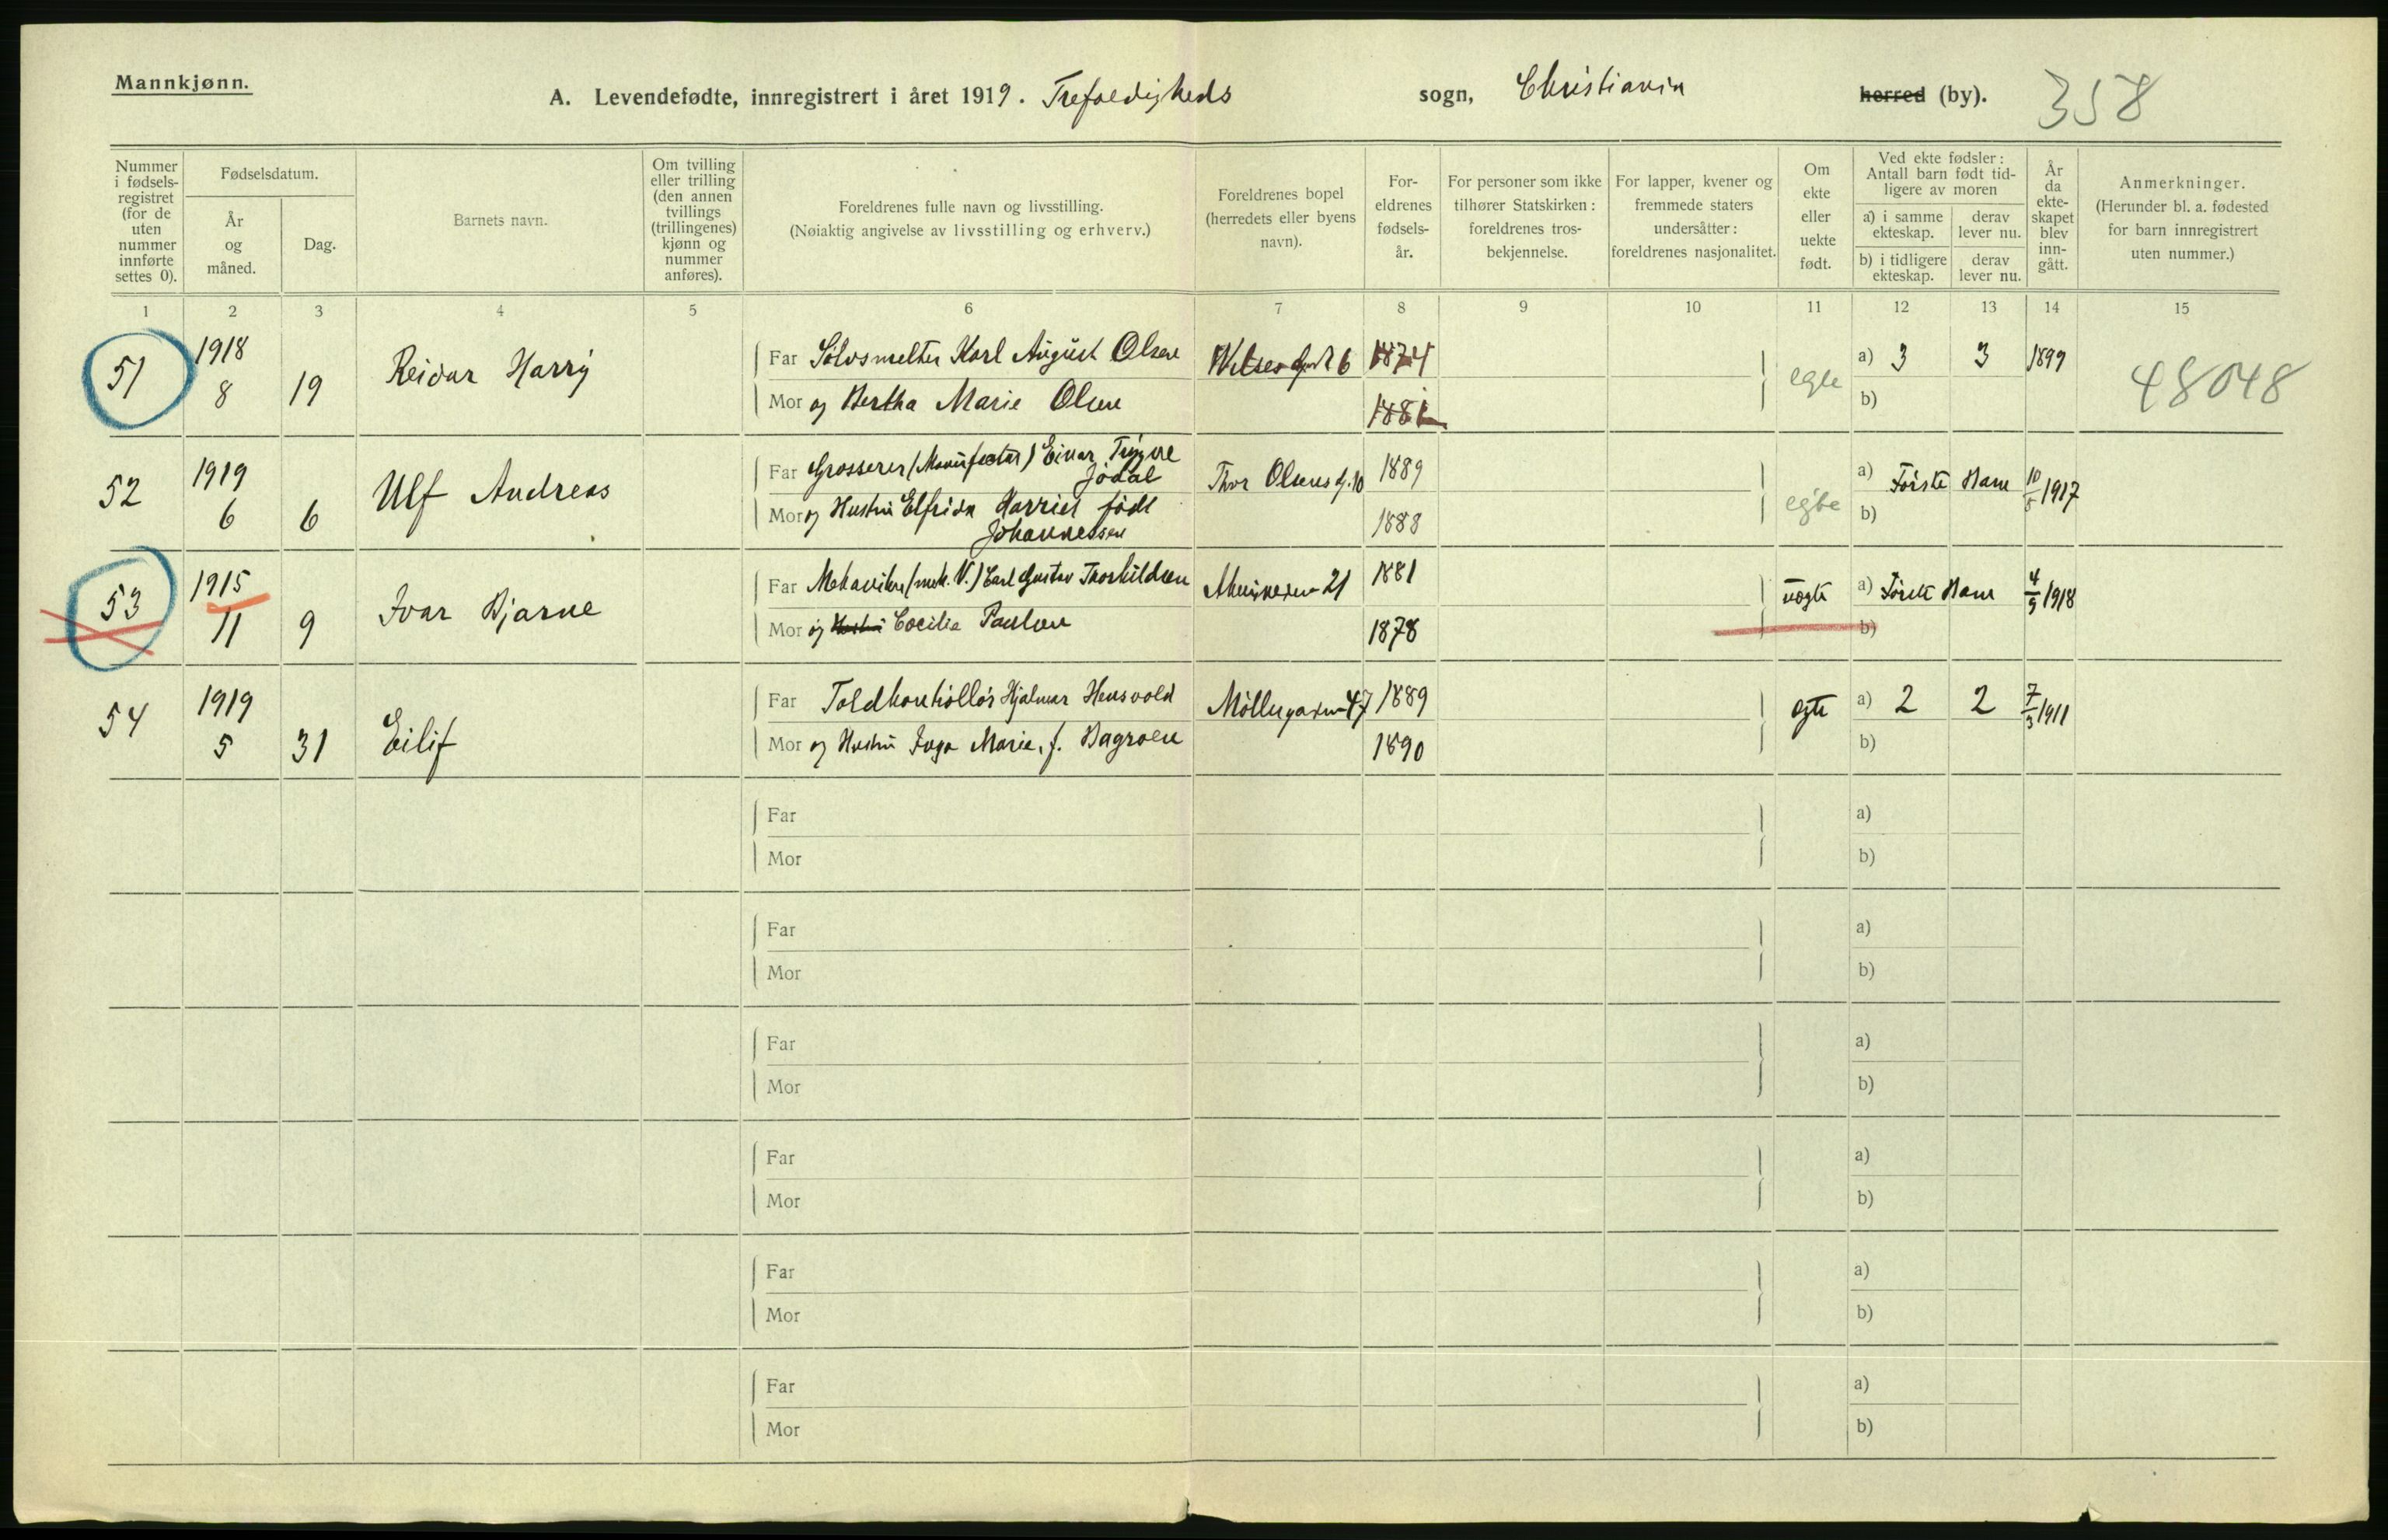 Mannkjønn.
A. Levendefødte, innregistrert i året 1919. Trefoldigheds sogn, Christiania herred (by). 358
Nummer i fødsels-registret (for de uten nummer innførte settes 0).
Fødselsdatum.
År og måned.
Dag.
Barnets navn.
Om tvilling eller trilling (den annen tvillings (trillingenes) kjønn og nummer anføres).
Foreldrenes fulle navn og livsstilling.
(Nøiaktig angivelse av livsstilling og erhverv.)
Foreldrenes bopel (herredets eller byens navn).
For-eldrenes fødsels-år.
For personer som ikke tilhører Statskirken: foreldrenes tros-bekjennelse.
For lapper, kvener og fremmede staters undersåtter: foreldrenes nasjonalitet.
Om ekte eller uekte født.
Ved ekte fødsler: Antall barn født tid-ligere av moren
a) i samme ekteskap.
derav lever nu.
b) i tidligere ekteskap.
derav lever nu.
År da ekte-skapet blev inn-gått.
Anmerkninger.
(Herunder bl. a. fødested for barn innregistrert uten nummer.)
1 2 3 4 5 6 7 8 9 10 11 12 13 14 15
51 1918 8 19 Reidar Harry
Far Sølvsmelter Karl August Olsen 6 1874 egte a) 3 3 1899 48048
Mor og Bertha Marie Olsen 1881 b)
52 1919 6 6 Ulf Andreas
Far Grosserer (Manufactur) Einar Trygve Jødal Thor Olsens g. 10 1889 egte a) Første Barn 10/5 1917
Mor og Hustru Elfrida Harriet født Johannessen 1888 b)
53 1915 11 9 Ivar Bjarne
Far Mekaniker (mek. V.) Carl Gustav Thorkildsen 21 1881 uegte a) Første Barn 4/5 1918
Mor og Hustru Cecilie Paulsen 1878 b)
54 1919 5 31 Eilif
Far Toldkontrollør Hjalmar Hensvold Møllergaden 47 1889 egte a) 2 2 7/3 1911
Mor og Hustru Inga Marie, f. Bagroen 1890 b)
Far a)
Mor b)
Far a)
Mor b)
Far a)
Mor b)
Far a)
Mor b)
Far a)
Mor b)
Far a)
Mor b)